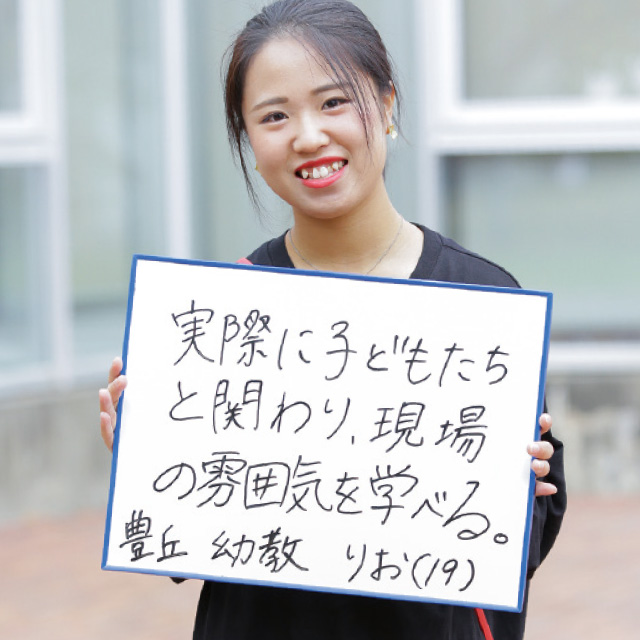 実際に子どもたち
と関わり、現場
の雰囲気を学べる。
豊丘 幼教 りお(19)